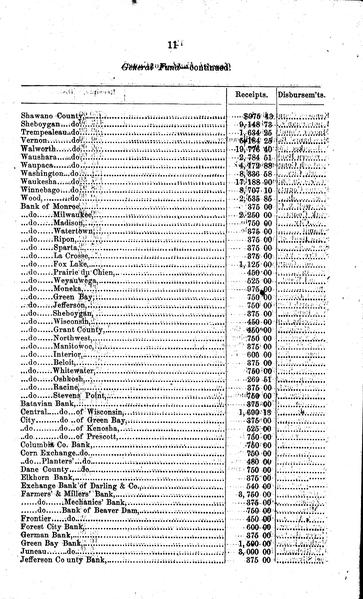 11
General Fund—continued.
Receipts. Disbursem'ts.
Shawano County, $975 43
Sheboygan....do 9,148 73
Trempealeau.do 1,634 25
Vernon........do 25
Walworth......do 19,776 40
Waushara.....do 2,784 51
Waupaca......do 4,472 88
Washington...do 8,836 58
Waukesha.....do 17,188 90
Winnebago....do 8,707 10
Wood,..........do 2,535 85
Bank of Monroe, 375 00
...do......Milwaukee, 2,250 00
...do......Madison, 750 00
...do......Watertown, 375 00
...do......Ripon, 375 00
...do......Sparta, 375 00
...do......La Crosse, 375 00
...do......Fox Lake, 1,125 00
...do......Prairie du Chien, 450 00
...do......Weyauwega, 525 00
...do......Moneka, 975 00
...do......Green Bay, 750 00
...do......Jefferson, 750 00
...do......Sheboygan, 375 00
...do......Wisconsin, 450 00
...do......Grant County, 450 00
...do......Northwest, 750 00
...do......Manitowoc, 375 00
...do......Interior, 600 00
...do......Beloit, 375 00
...do......Whitewater, 750 00
...do......Oshkosh, 269 51
...do......Racine, 375 00
...do......Stevens Point, 750 00
Batavian Bank, 375 00
Central.....do...of Wisconsin, 1,690 13
City.........do...of Green Bay, 375 00
..do.........do...of Kenosha, 525 00
..do.........do...of Prescott, 750 00
Columbia Co. Bank, 750 00
Corn Exchange..do 750 00
..do...Planters'...do 480 00
Dane County.....do 750 00
Elkhorn Bank, 375 00
Exchange Bank of Darling & Co. 540 00
Farmers' & Millers' Bank, 3,750 00
.....do.......Mechanics' Bank, 375 00
.....do.......Bank of Beaver Dam, 750 00
Frontier......do 450 00
Forest City Bank, 600 00
German Bank, 375 00
Green Bay Bank, 1,500 00
Juneau.......do 3,000 00
Jefferson County Bank, 375 00